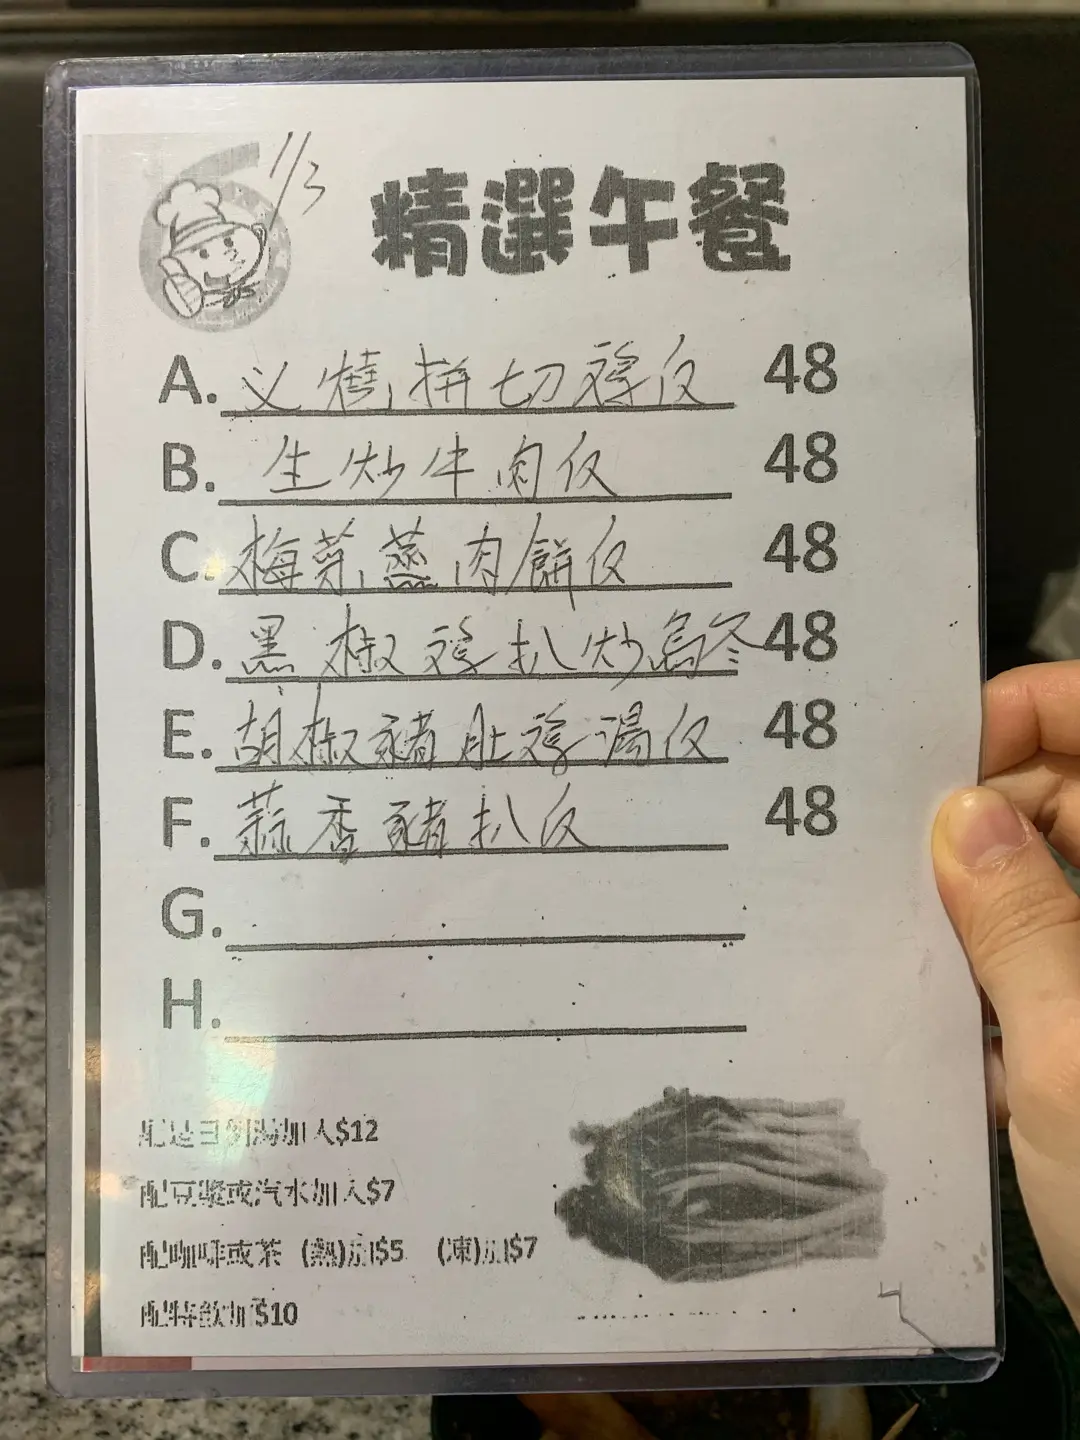 1/3
精選午餐
A. 义燒拼切鸡仅 48
B. 生炒牛肉仅 48
C. 梅菜蒸肉餅仅 48
D. 黑椒鸡扒炒烏冬 48
E. 胡椒豬肚鸡湯仅 48
F. 蒜香豬扒仅 48
G.
H.
配是日例湯加入$12
配豆漿或汽水加入$7
配咖啡或茶 (熱)加$5 (凍)加$7
配特飲加$10